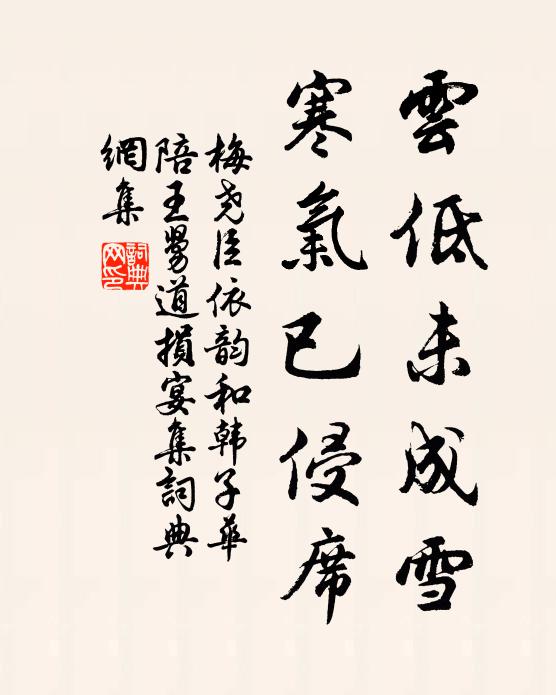 雲低未成雪
寒氣已侵席
梅尧臣依韵和韩子華
陪王舅道損宴集詞典
網集
詞典網印